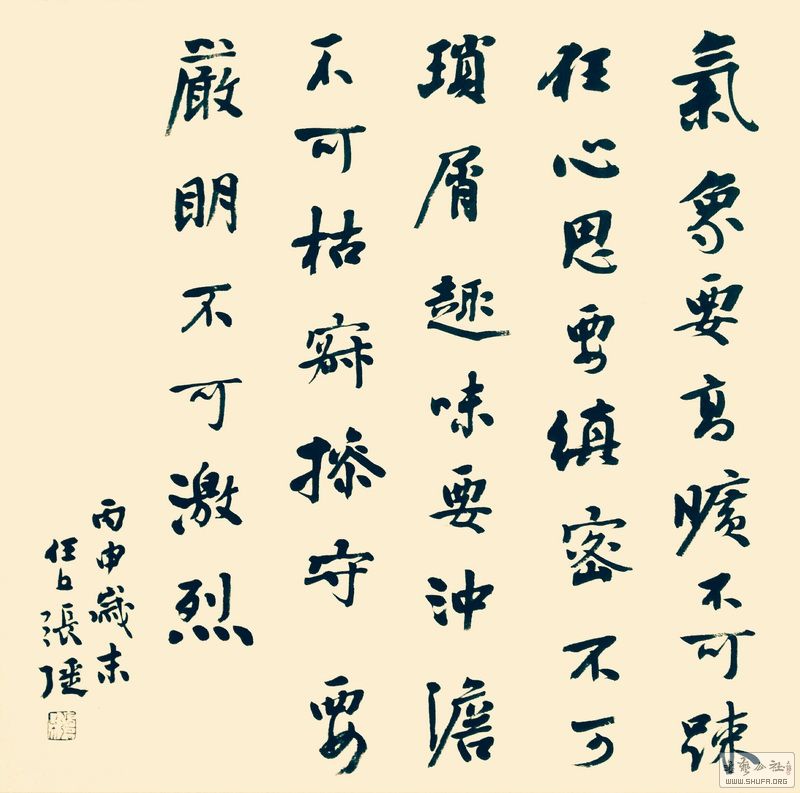 氣象要高曠不可踈
狂心思要縝密不可
瑣屑趣味要沖澹
不可枯寂操守要
厳明不可激烈
丙申歲末
任丘張
藝公社
WWW.SHUFA.ORG